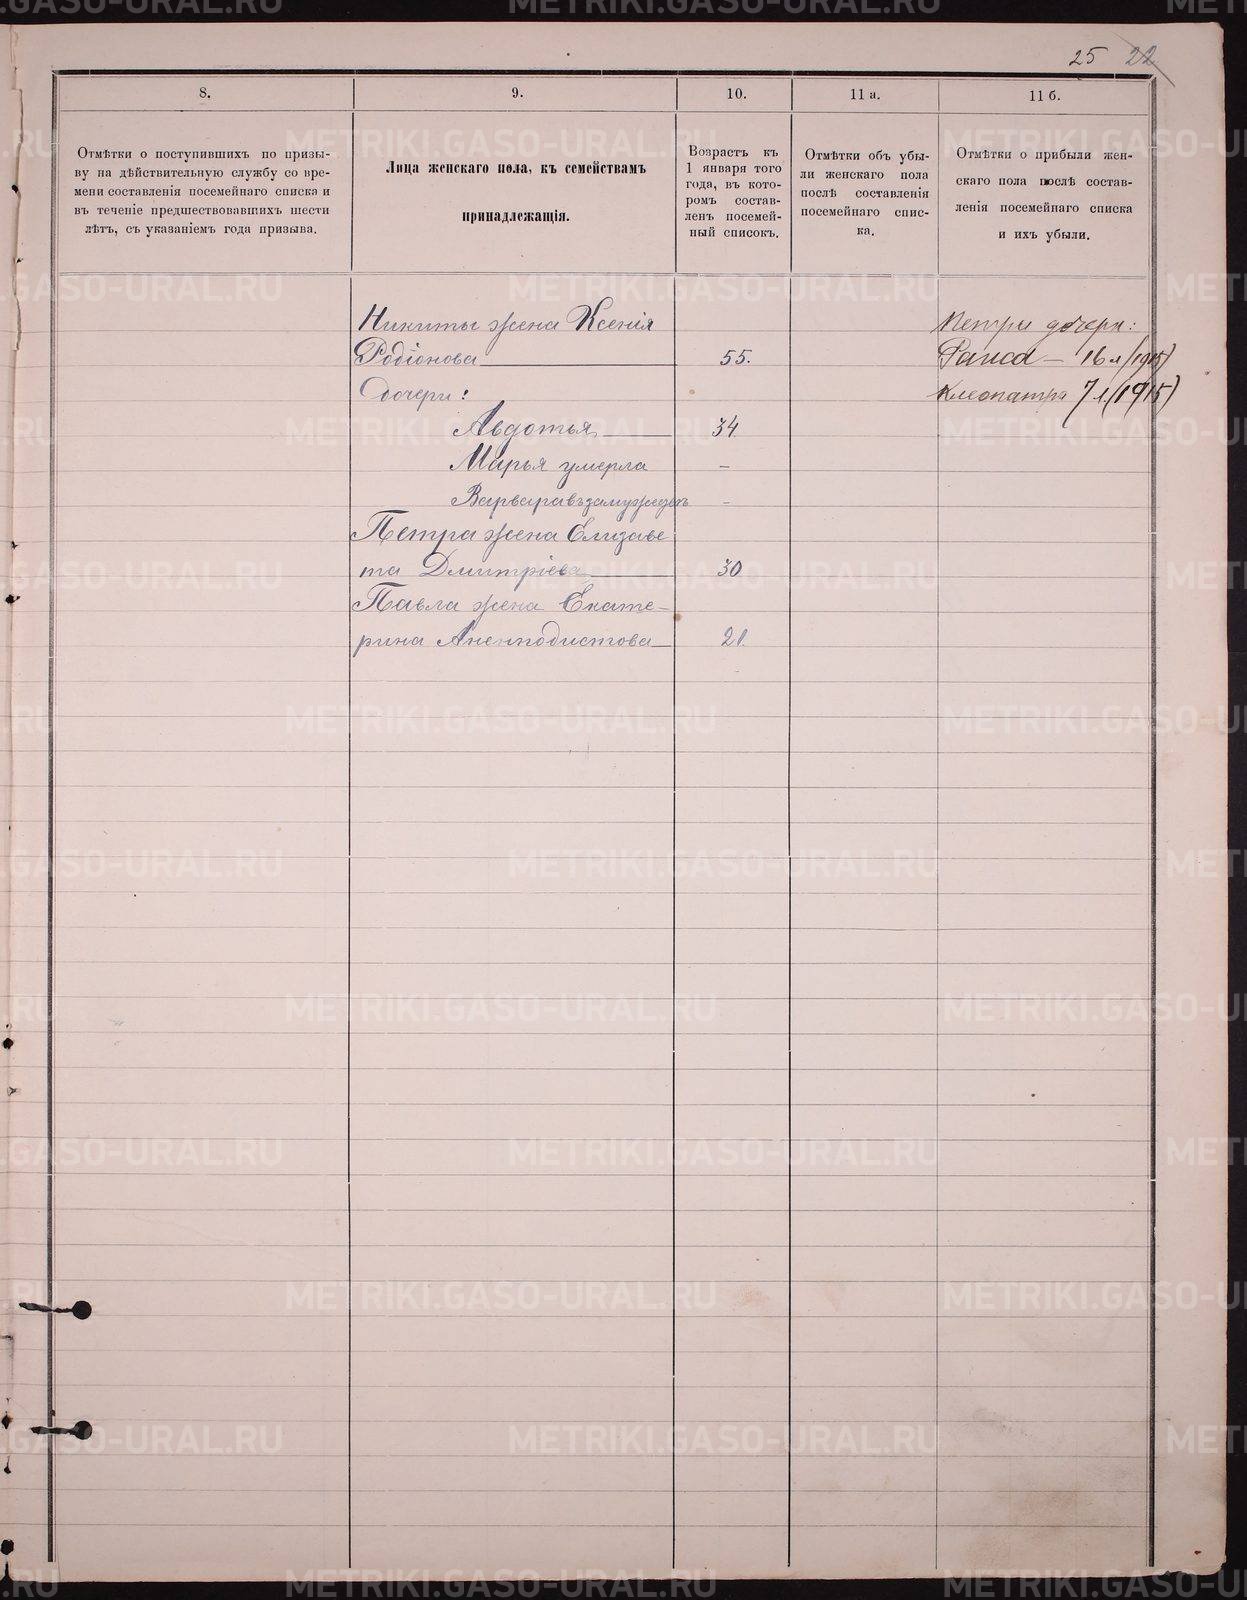 25 22
8.
9.
10.
11 а.
11 б.
Отмѣтки о поступившихъ по призы-
ву на дѣйствительную службу со вре-
мени составленія посемейнаго списка и
въ теченіе предшествовавшихъ шести
лѣтъ, съ указаніемъ года призыва.
Лица женскаго пола, къ семействамъ
принадлежащія.
Возрастъ къ
1 января того
года, въ кото-
ромъ состав-
ленъ посемей-
ный списокъ.
Отмѣтки объ убы-
ли женскаго пола
послѣ составленія
посемейнаго спис-
ка.
Отмѣтки о прибыли жен-
скаго пола послѣ состав-
ленія посемейнаго списка
и ихъ убыли.
Никиты жена Ксенія
Родіонова 55.
Дочери:
Авдотья 34
Марья умерла -
Варвара въ замужествѣ -
Петра жена Елизаве
та Дмитріева 30
Павла жена Екате-
рина Аненподистова 21.
Петра дочери:
Раиса - 16 л (1915)
Клеопатра 7 л (1915)
METRIKI.GASO-URAL.RU